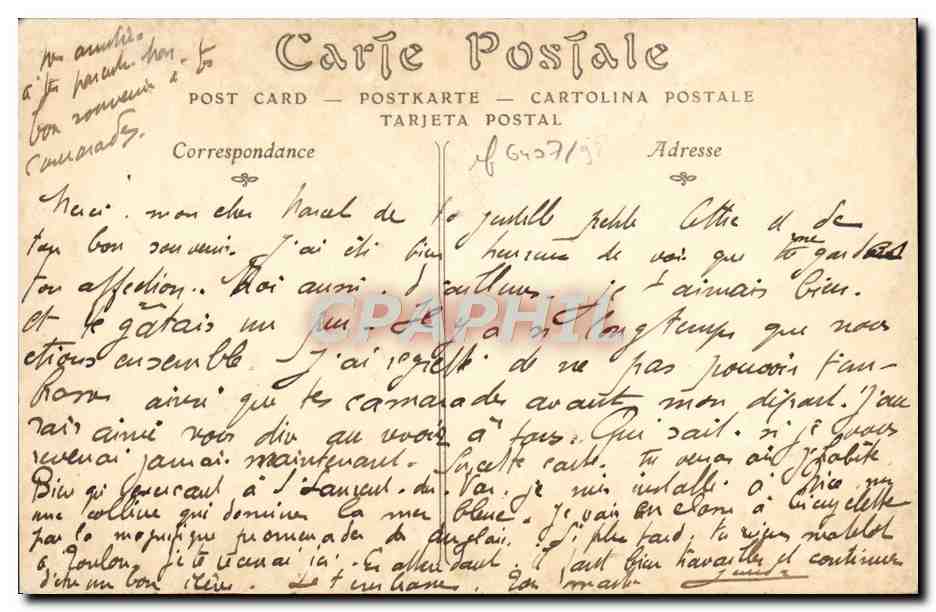 Carte Postale
POST CARD — POSTKARTE — CARTOLINA POSTALE
TARJETA POSTAL
Correspondance
Adresse
bon souvenir à tes
camarades.
Merci mon cher Marcel de ta gentille petite lettre et de
ton bon souvenir. J'ai été bien heureux de voir que tu me gardes
ton affection. Moi aussi d'ailleurs. je t'aimais bien.
et te gâtais un peu. Il y a si longtemps que nous
étions ensemble. J'ai regretté de ne pas pouvoir t'em-
brasser ainsi que tes camarades avant mon départ. J'au
rais aimé vous dire au revoir à tous. Qui sait si je vous
reverrai jamais maintenant. Sur cette carte tu verras où j'habite
Bien qu'exerçant à St Laurent-du-Var, je suis installé à Nice sur
une colline qui domine la mer bleue. Je vais en classe à bicyclette
par la magnifique promenade des Anglais. Si plus tard, tu viens matelot
à Toulon je te recevrai ici. En attendant il faut bien travailler et continuer
d'être un bon élève. Je t'embrasse. Ton maître
CPAPHIL